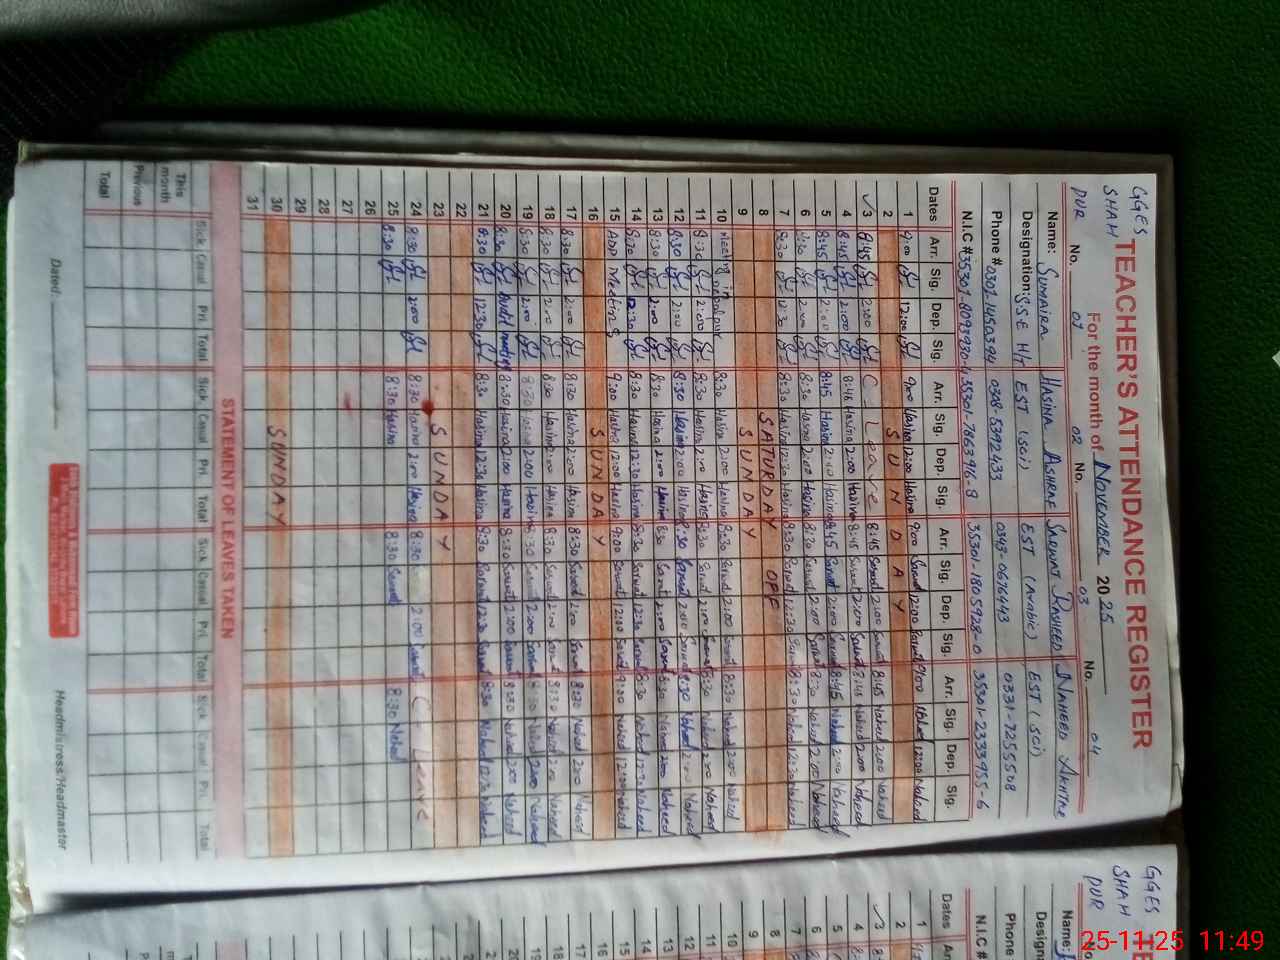 GGES
SHAH
PUR
TEACHER'S ATTENDANCE REGISTER
For the month of November 2025
No. 01 02 No. 03 No. 04
Name: SUMAIRA HASINA ASHRAF SARWAT RASHEED NAHEED AKHTAR
Designation: S.S.E H/T EST (Sci) EST (Arabic) EST (Sci)
Phone # 0308-5392433 0343-0676443 0331-7255508
N.I.C # 35301-7863796-8 35301-1805928-0 35301-2333955-6
Dates Arr. Sig. Dep. Sig. Arr. Sig. Dep. Sig. Arr. Sig. Dep. Sig. Arr. Sig. Dep. Sig.
1 9:00 12:00 9:00 Hasina 12:00 Hasina 9:00 Sarwat 12:00 Sarwat 9:00 Naheed 12:00 Naheed
2 SUNDAY
3 8:45 2:00 C Leave 8:45 Sarwat 2:00 Sarwat 8:45 Naheed 2:00 Naheed
4 8:45 2:00 8:45 Hasina 2:00 Hasina 8:45 Sarwat 2:00 Sarwat 8:45 Naheed 2:00 Naheed
5 8:45 2:00 8:45 Hasina 2:00 Hasina 8:45 Sarwat 2:00 Sarwat 8:45 Naheed 2:00 Naheed
6 8:30 2:00 8:30 Hasina 2:00 Hasina 8:30 Sarwat 2:00 Sarwat 8:30 Naheed 2:00 Naheed
7 8:30 12:30 8:30 Hasina 12:30 Hasina 8:30 Sarwat 12:30 Sarwat 8:30 Naheed 12:30 Naheed
8 SATURDAY OFF
9 SUNDAY
10 Meeting in 8:30 Hasina 2:00 Hasina 8:30 Sarwat 2:00 Sarwat 8:30 Naheed 2:00 Naheed
11 8:30 2:00 8:30 Hasina 2:00 Hasina 8:30 Sarwat 2:00 Sarwat 8:30 Naheed 2:00 Naheed
12 8:30 2:00 8:30 Hasina 2:00 Hasina 8:30 Sarwat 2:00 Sarwat 8:30 Naheed 2:00 Naheed
13 8:30 2:00 8:30 Hasina 2:00 Hasina 8:30 Sarwat 2:00 Sarwat 8:30 Naheed 2:00 Naheed
14 8:30 12:30 8:30 Hasina 12:30 Hasina 8:30 Sarwat 12:30 Sarwat 8:30 Naheed 12:30 Naheed
15 Meeting 9:00 Hasina 12:00 Hasina 9:00 Sarwat 12:00 Sarwat 9:00 Naheed 12:00 Naheed
16 SUNDAY
17 8:30 2:00 8:30 Hasina 2:00 Hasina 8:30 Sarwat 2:00 Sarwat 8:30 Naheed 2:00 Naheed
18 8:30 2:00 8:30 Hasina 2:00 Hasina 8:30 Sarwat 2:00 Sarwat 8:30 Naheed 2:00 Naheed
19 8:30 2:00 8:30 Hasina 2:00 Hasina 8:30 Sarwat 2:00 Sarwat 8:30 Naheed 2:00 Naheed
20 8:30 Audit meeting 8:30 Hasina 2:00 Hasina 8:30 Sarwat 2:00 Sarwat 8:30 Naheed 2:00 Naheed
21 8:30 12:30 8:30 Hasina 12:30 Hasina 8:30 Sarwat 12:30 Sarwat 8:30 Naheed 12:30 Naheed
22
23 SUNDAY
24 8:30 2:00 8:30 Hasina 2:00 Hasina 8:30 2:00 Sarwat C Leave
25 8:30 8:30 Hasina 8:30 Sarwat 8:30 Naheed
26
27
28
29
30 SUNDAY
31
STATEMENT OF LEAVES TAKEN
Sick Casual Pri. Total Sick Casual Pri. Total Sick Casual Pri. Total Sick Casual Pri. Total
This month
Previous
Total
Dated: Headmistress/Headmaster
GGES
SHAH
PUR
TE
No.
Name:
Designa
Phone
N.I.C #
Dates Ar
1
2
3
4
5
6
7
8
9
10
11
12
13
14
15
16
17
18
19
20
25-11-25 11:49